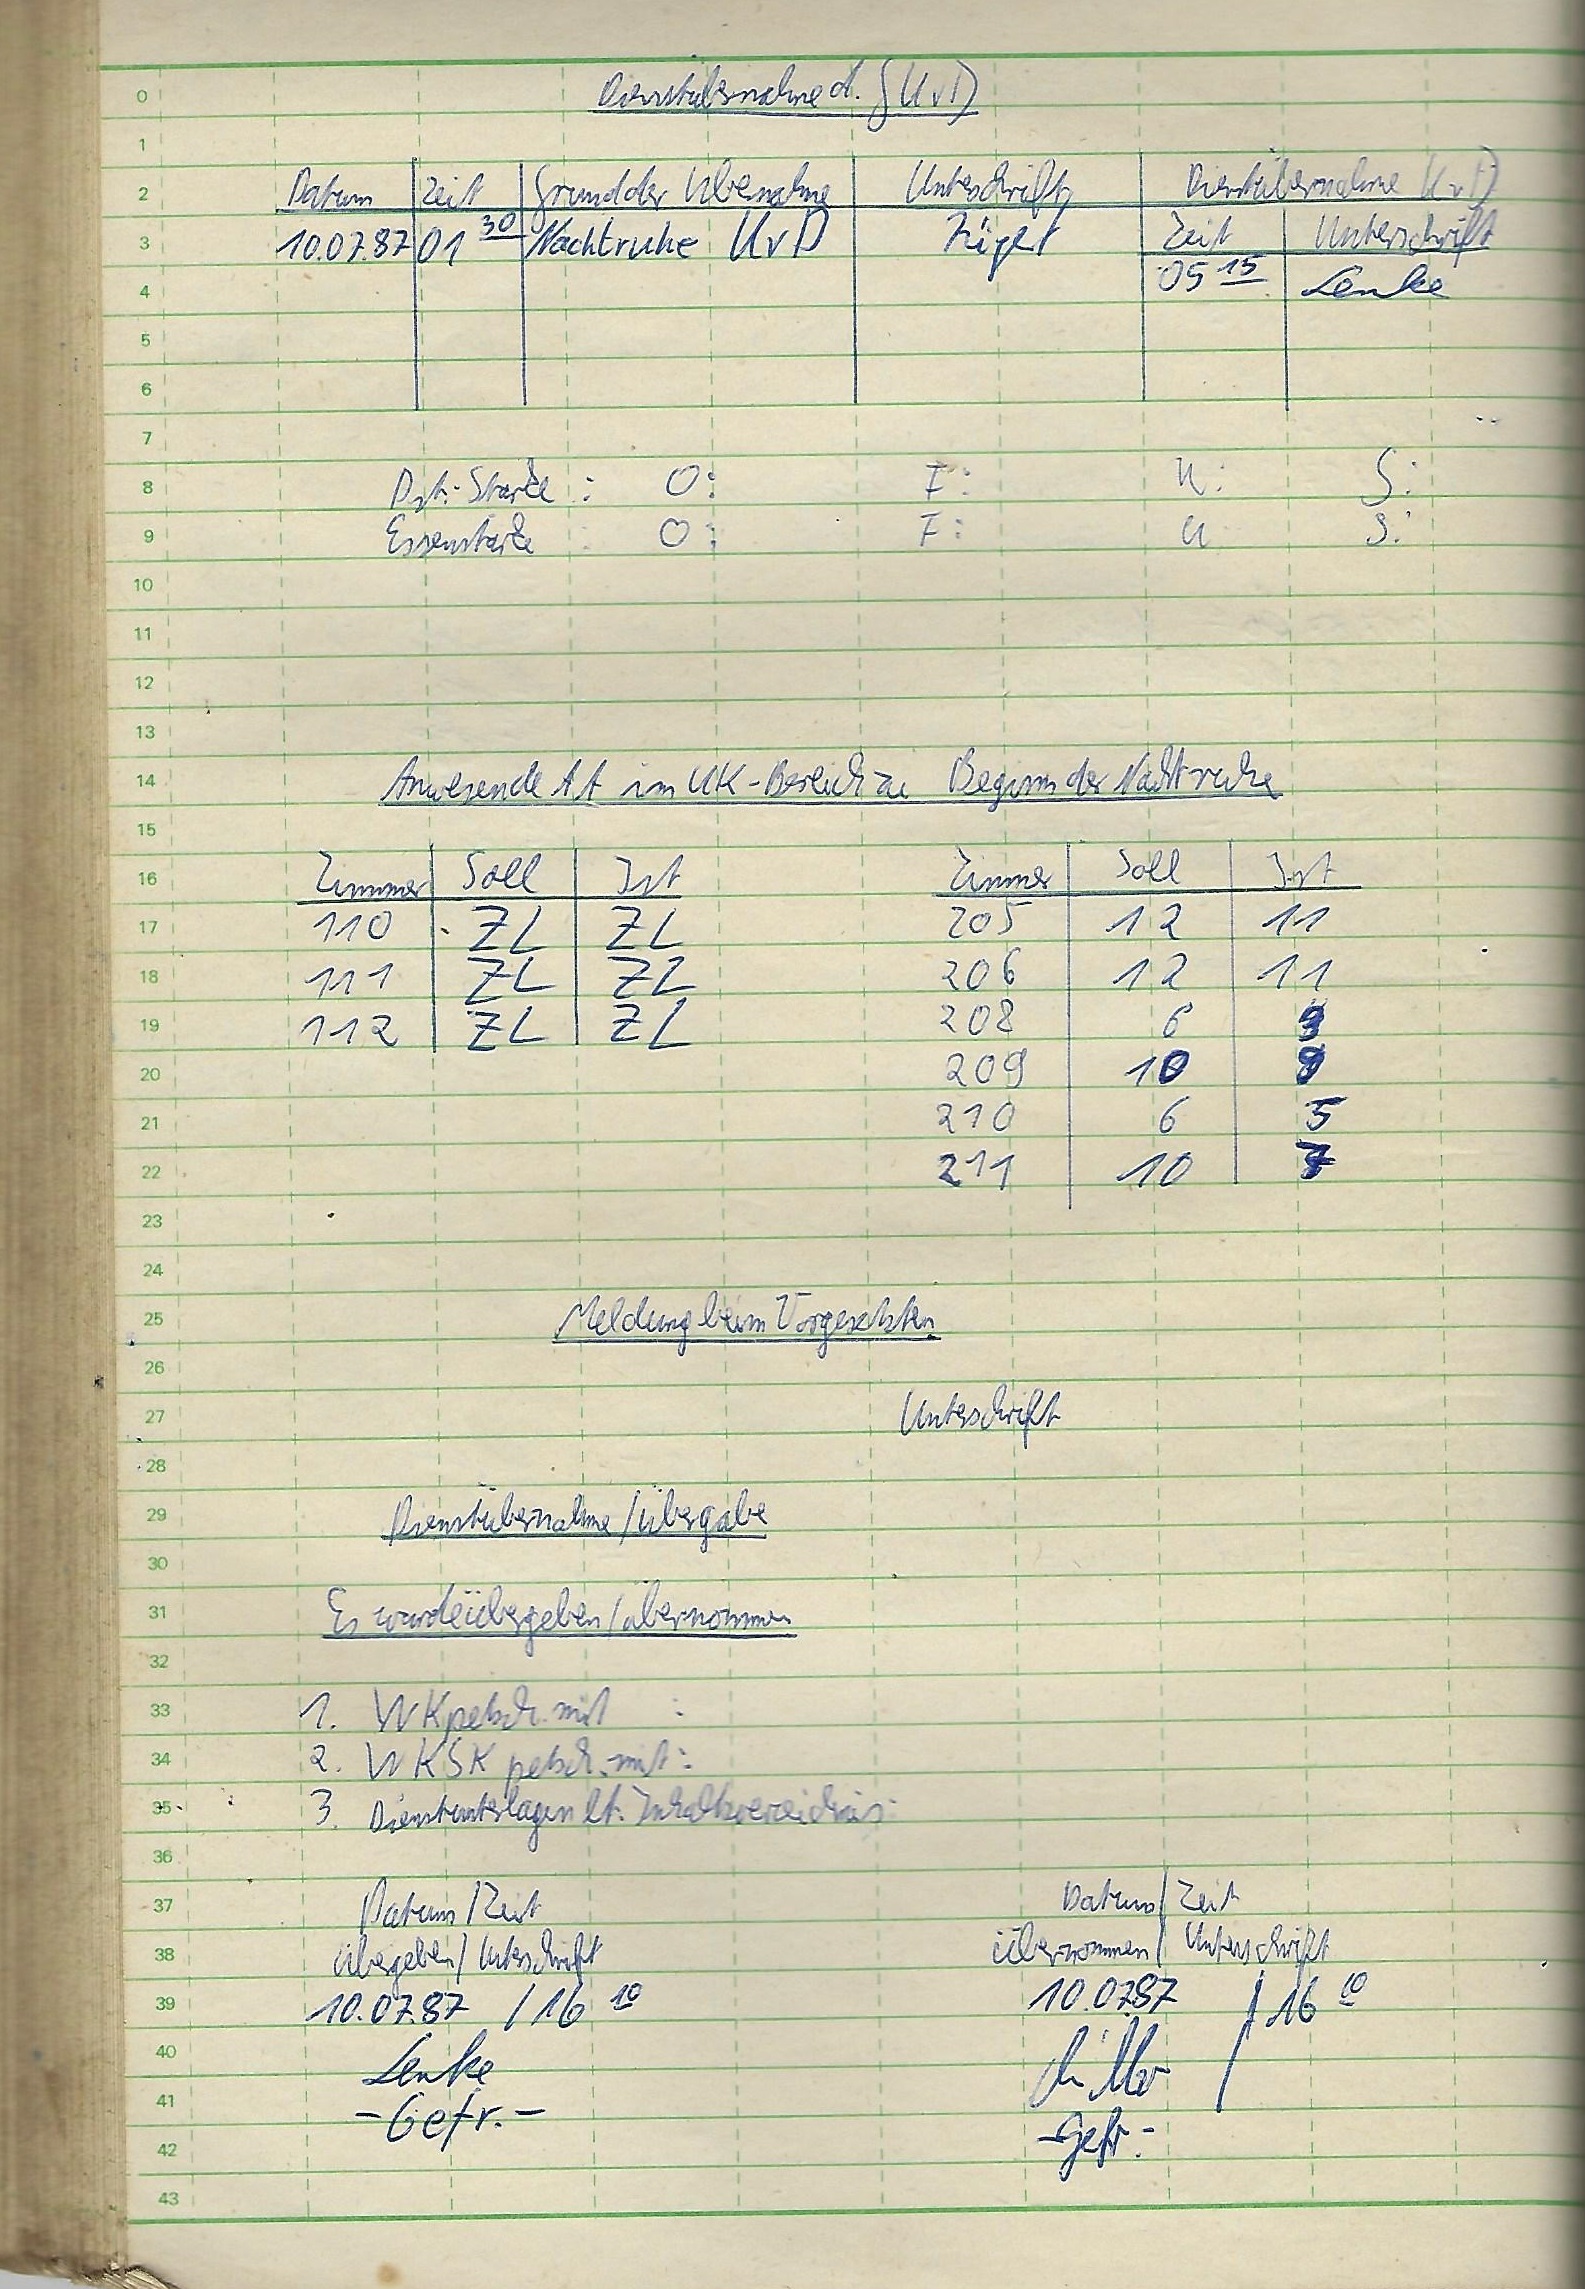 0 Dienstübernahme d. GUvD
1
2 Datum Zeit Grund der Übernahme Unterschrift Dienstübernahme UvD
3 10.07.87 01 30 Nachtruhe UvD Zeit Unterschrift
4 05 15 Lenke
5
6
7
8 Dst.-Stärke : O: F: U: S:
9 Essenstärke : O: F: U S:
10
11
12
13
14 Anwesende AA im UK-Bereich zu Beginn der Nachtruhe
15
16 Zimmer Soll Ist Zimmer Soll Ist
17 110 ZL ZL 205 12 11
18 111 ZL ZL 206 12 11
19 112 ZL ZL 208 6
20 209 10
21 210 6 5
22 211 10 7
23
24
25 Meldung beim Vorgesetzten
26
27 Unterschrift
28
29 Dienstübernahme/übergabe
30
31 Es wurde übergeben/übernommen
32
33 1. WK petsch. mit :
34 2. WKSK petsch. mit :
35 3. Dienstunterlagen lt. Inhaltsverzeichnis:
36
37 Datum/Zeit Datum/Zeit
38 übergeben/Unterschrift übernommen/Unterschrift
39 10.07.87 / 16 10 10.07.87 / 16 10
40 Lenke
41 -Gefr.-
42 -Gefr.-
43